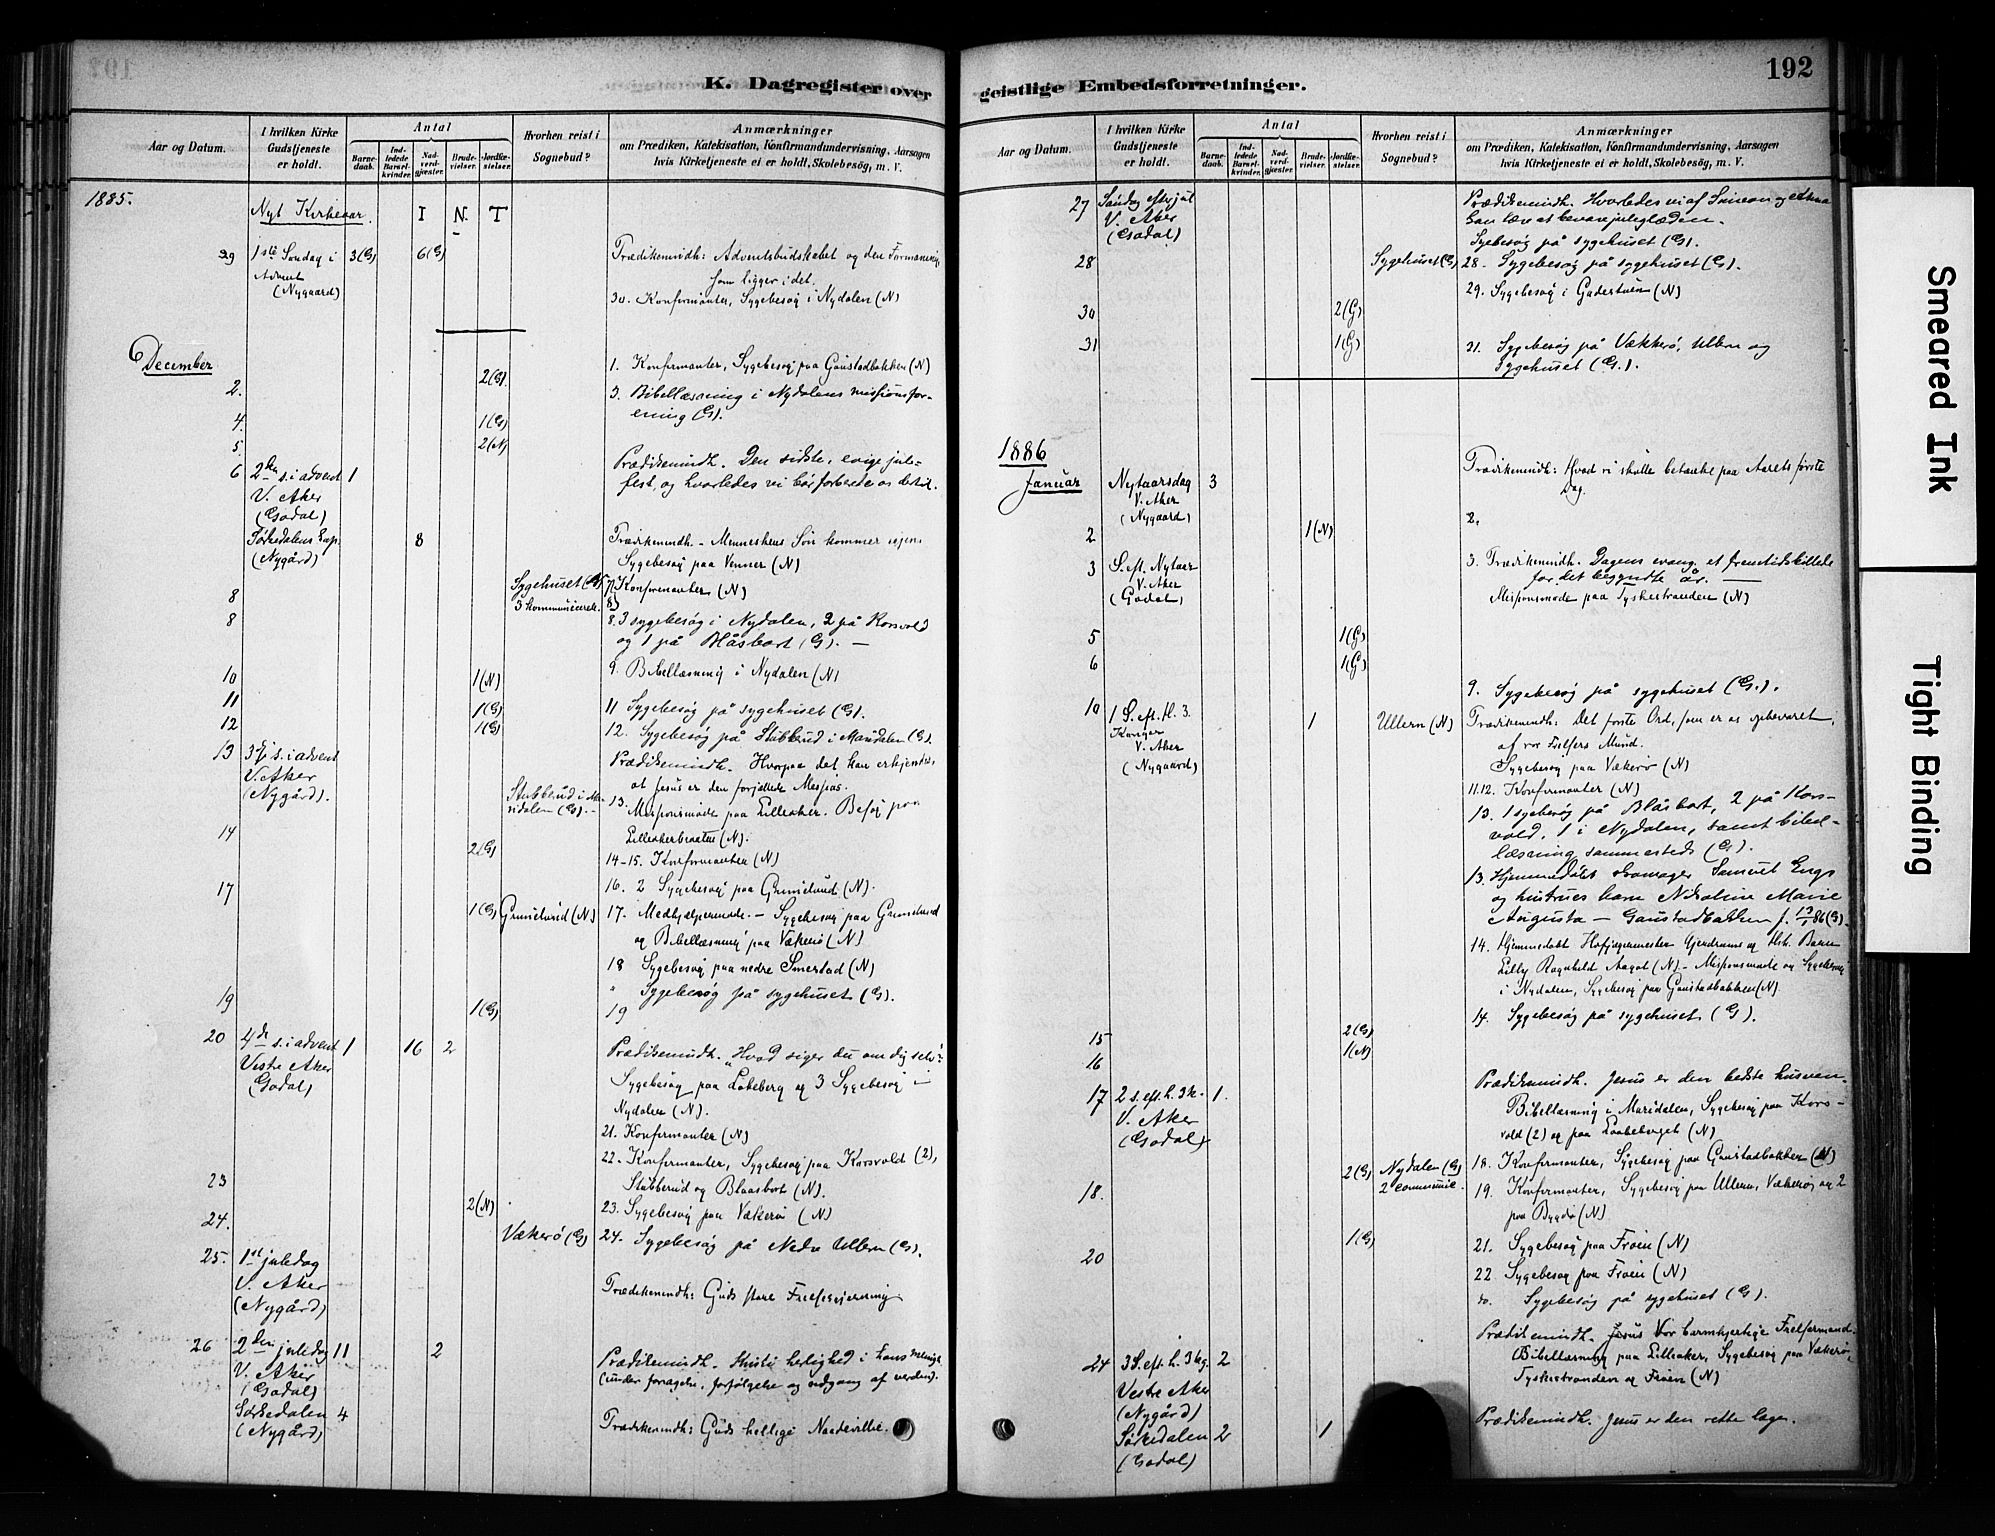 192
K. Dagregister over
geistlige Embedsforretninger.
Aar og Datum.
I hvilken Kirke
Gudstjeneste
er holdt.
Antal
Barne-
daab.
Ind-
ledede
Barsel-
kvinder.
Nad-
verd-
gjæster.
Brude-
vielser.
Jordfæ-
stelser.
Hvorhen reist i
Sognebud?
Anmærkninger
om Prædiken, Katekisation, Konfirmandundervisning, Aarsagen
hvis Kirketjeneste ei er holdt, Skolebesög, m. V.
1885.
Nyt Kirkeaar. I N T
29 1ste Søndag i 3(G) 6(G) Prædikenindh: Adventsbudskabet og den Formaning,
Advent
(Nygaard) som ligger i det.
30. Konfirmanter, Sygebesøg i Nydalen (N)
December
1. Konfirmanter, Sygebesøg paa Gaustadbakken (N)
2. 2(G).
3. Bibellæsning i Nydalens missionsfor-
ening (G).
4. 1(G)
5. 2(N)
6 2den s. i advent 1 Prædikenindh. Den sidste, evige jule-
V. Aker fest, og hvorledes vi bør forberede os dertil.
(Godal)
Sørkedalens Kap. 8 Prædikenindh. - Menneskens Søn kommer igjen.
(Nygård) Sygebesøg paa (N)
Sygehuset 7. Konfirmanter (N)
8 3 kommunicerede.
8 8. 3 sygebesøg i Nydalen, 2 på Korsvold
og 1 på Blåsbort (G). —
9. Bibellæsning i Nydalen (N)
10 1(N)
11 1(G) 11 Sygebesøg på sygehuset (G).
12 1(G) 12. Sygebesøg på Stubberud i Maridalen (G).
13 3dj s. i advent Prædikenindh. Hvorpaa det kan erkjendes,
V. Aker at Jesus er den forjættede Messias.
(Nygård).
Stubberud i Ma-
ridalen (G). - 13. Missionsmøde paa Lilleaker. Besøg paa
Lilleakerbraaten (N).
14 2(G)
14-15. Konfirmanter (N)
16. 2 Sygebesøg paa Grimelund (N).
17 1(G) Grimelund (N) 17. Medhjælpermøde. - Sygebesøg paa Grimelund
og Bibellæsning paa Vækerø (N)
18 Sygebesøg paa nedre Smestad (N)
" Sygebesøg på sygehuset (G).
19 1(G) 19
20 4de s. i advent 1 16 2 Prædikenindh. "Hvad siger du om dig selv?"
Vestre Aker Sygebesøg paa Løkeberg og 3 Sygebesøg i
(Godal) Nydalen (N).
21. Konfirmanter (N)
22. Konfirmanter, Sygebesøg paa Korsvold (2),
Stubberud og Blaasbort (N).
23 2(N) 23. Sygebesøg paa Vækerø (N)
24. Vækerø (G) 24. Sygebesøg på Nedre Ullern (G).
25. 1st juledag
V. Aker
(Nygård) Prædikenindh: Guds store Frelsesgjerning
26 2den juledag 11 2 Prædikenindh. Kristi herlighed i hans menigh.
V. Aker (under foragelse, forfølgelse og udgang af verden).
(Godal)
Sørkedalen 4 Prædikenindh: Guds hellige Naadevillie.
(Nygård)
Aar og Datum.
I hvilken Kirke
Gudstjeneste
er holdt.
Antal
Barne-
daab.
Ind-
ledede
Barsel-
kvinder.
Nad-
verd-
gjæster.
Brude-
vielser.
Jordfæ-
stelser.
Hvorhen reist i
Sognebud?
Anmærkninger
om Prædiken, Katekisation, Konfirmandundervisning, Aarsagen
hvis Kirketjeneste ei er holdt, Skolebesög, m. V.
27 Søndag efter jul Prædikenindh. Hvorledes vi af Simeon og Anna
V. Aker kan lære at bevare juleglæden.
(Godal) Sygebesøg på sygehuset (G).
28 Sygehuset (G) 28. Sygebesøg på sygehuset (G).
29. Sygebesøg i (N)
30 2(G)
31 1(G) 31. Sygebesøg på Vækkerø, Ullern og
Sygehuset (G.).
1886
Januar Nytaarsdag 3 Prædikenindh: Hvad vi skulle betænke paa Aarets første
V. Aker Dag.
(Nygaard)
2 1(N) 2.
3 S. eft. Nytaar 3. Prædikenindh. Dagens evang. et fremtidsbillede
V. Aker for det begyndte år. —
(Godal) Missionsmøde paa Tyskestranden (N)
5 1(G)
6 1(G)
9. Sygebesøg på sygehuset (G.).
10 1 S. eft. H. 3. 1 Ullern (N) Prædikenindh: Det første Ord, som er os opbevaret
Konger af vor Frelsers Mund.
V. Aker Sygebesøg paa Vækerø (N)
(Nygaard)
11.12. Konfirmanter (N)
13. 1 sygebesøg på Blåsbort, 2 på Kors-
vold, 1 i Nydalen, samt bibel-
læsning sammesteds (G).
13. Hjemmedøbt skomager Samuel Engs
og hustrues barn Nikoline Marie
Augusta — Gaustadbakken f. 13/1 86 (G).
14. Hjemmedøbt Hofjægermester Gjerdrums og Hst. Barn
Lilly Ragnhild Aagot (N) - Missionsmøde og Sygebesøg
i Nydalen, Sygebesøg paa Gaustadbakken (N)
14. Sygebesøg på sygehuset (G).
15 2(G)
16 1(N)
17 2 s. eft. h. 3 k. 1. Prædikenindh. Jesus er den bedste husven.
V. Aker Bibellæsning i Maridalen, Sygebesøg paa Kors-
(Godal) vold (2) og paa Laakeberget (N)
18. 2(G) Nydalen (G) 18. Konfirmanter, Sygebesøg paa Gaustadbakken (N)
2 communic. 19. Konfirmanter, Sygebesøg paa Ullern, Vækerø og 2
paa Bygdø (N)
20 1(G) 21. Sygebesøg paa Frøen (N)
22 Sygebesøg paa Frøen (N)
do. Sygebesøg på sygehuset (G).
24 3 S. eft. h. 3 kg. 2 Prædikenindh. Vor barmhjertige Frelsermand.
Vestre Aker Bibellæsning paa Lilleaker, Sygebesøg paa Vækerø,
(Nygård) Tyskestranden og Frøen (N)
Sørkedalen 2 1 Prædikenindh. Jesus er den rette læge.
(Godal)
Smeared Ink
Tight Binding